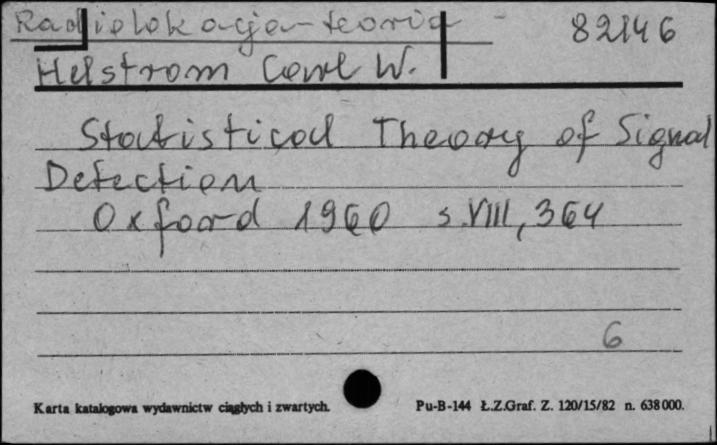 Radiolokacja-teoria 82146
Helstrom Carl W.
Statistical Theory of Signal
Detection
Oxford 1960 s.VIII, 364
6
Karta katalogowa wydawnictw ciągłych i zwartych. Pu-B-144 Ł.Z.Graf. Z. 120/15/82 n. 638000.